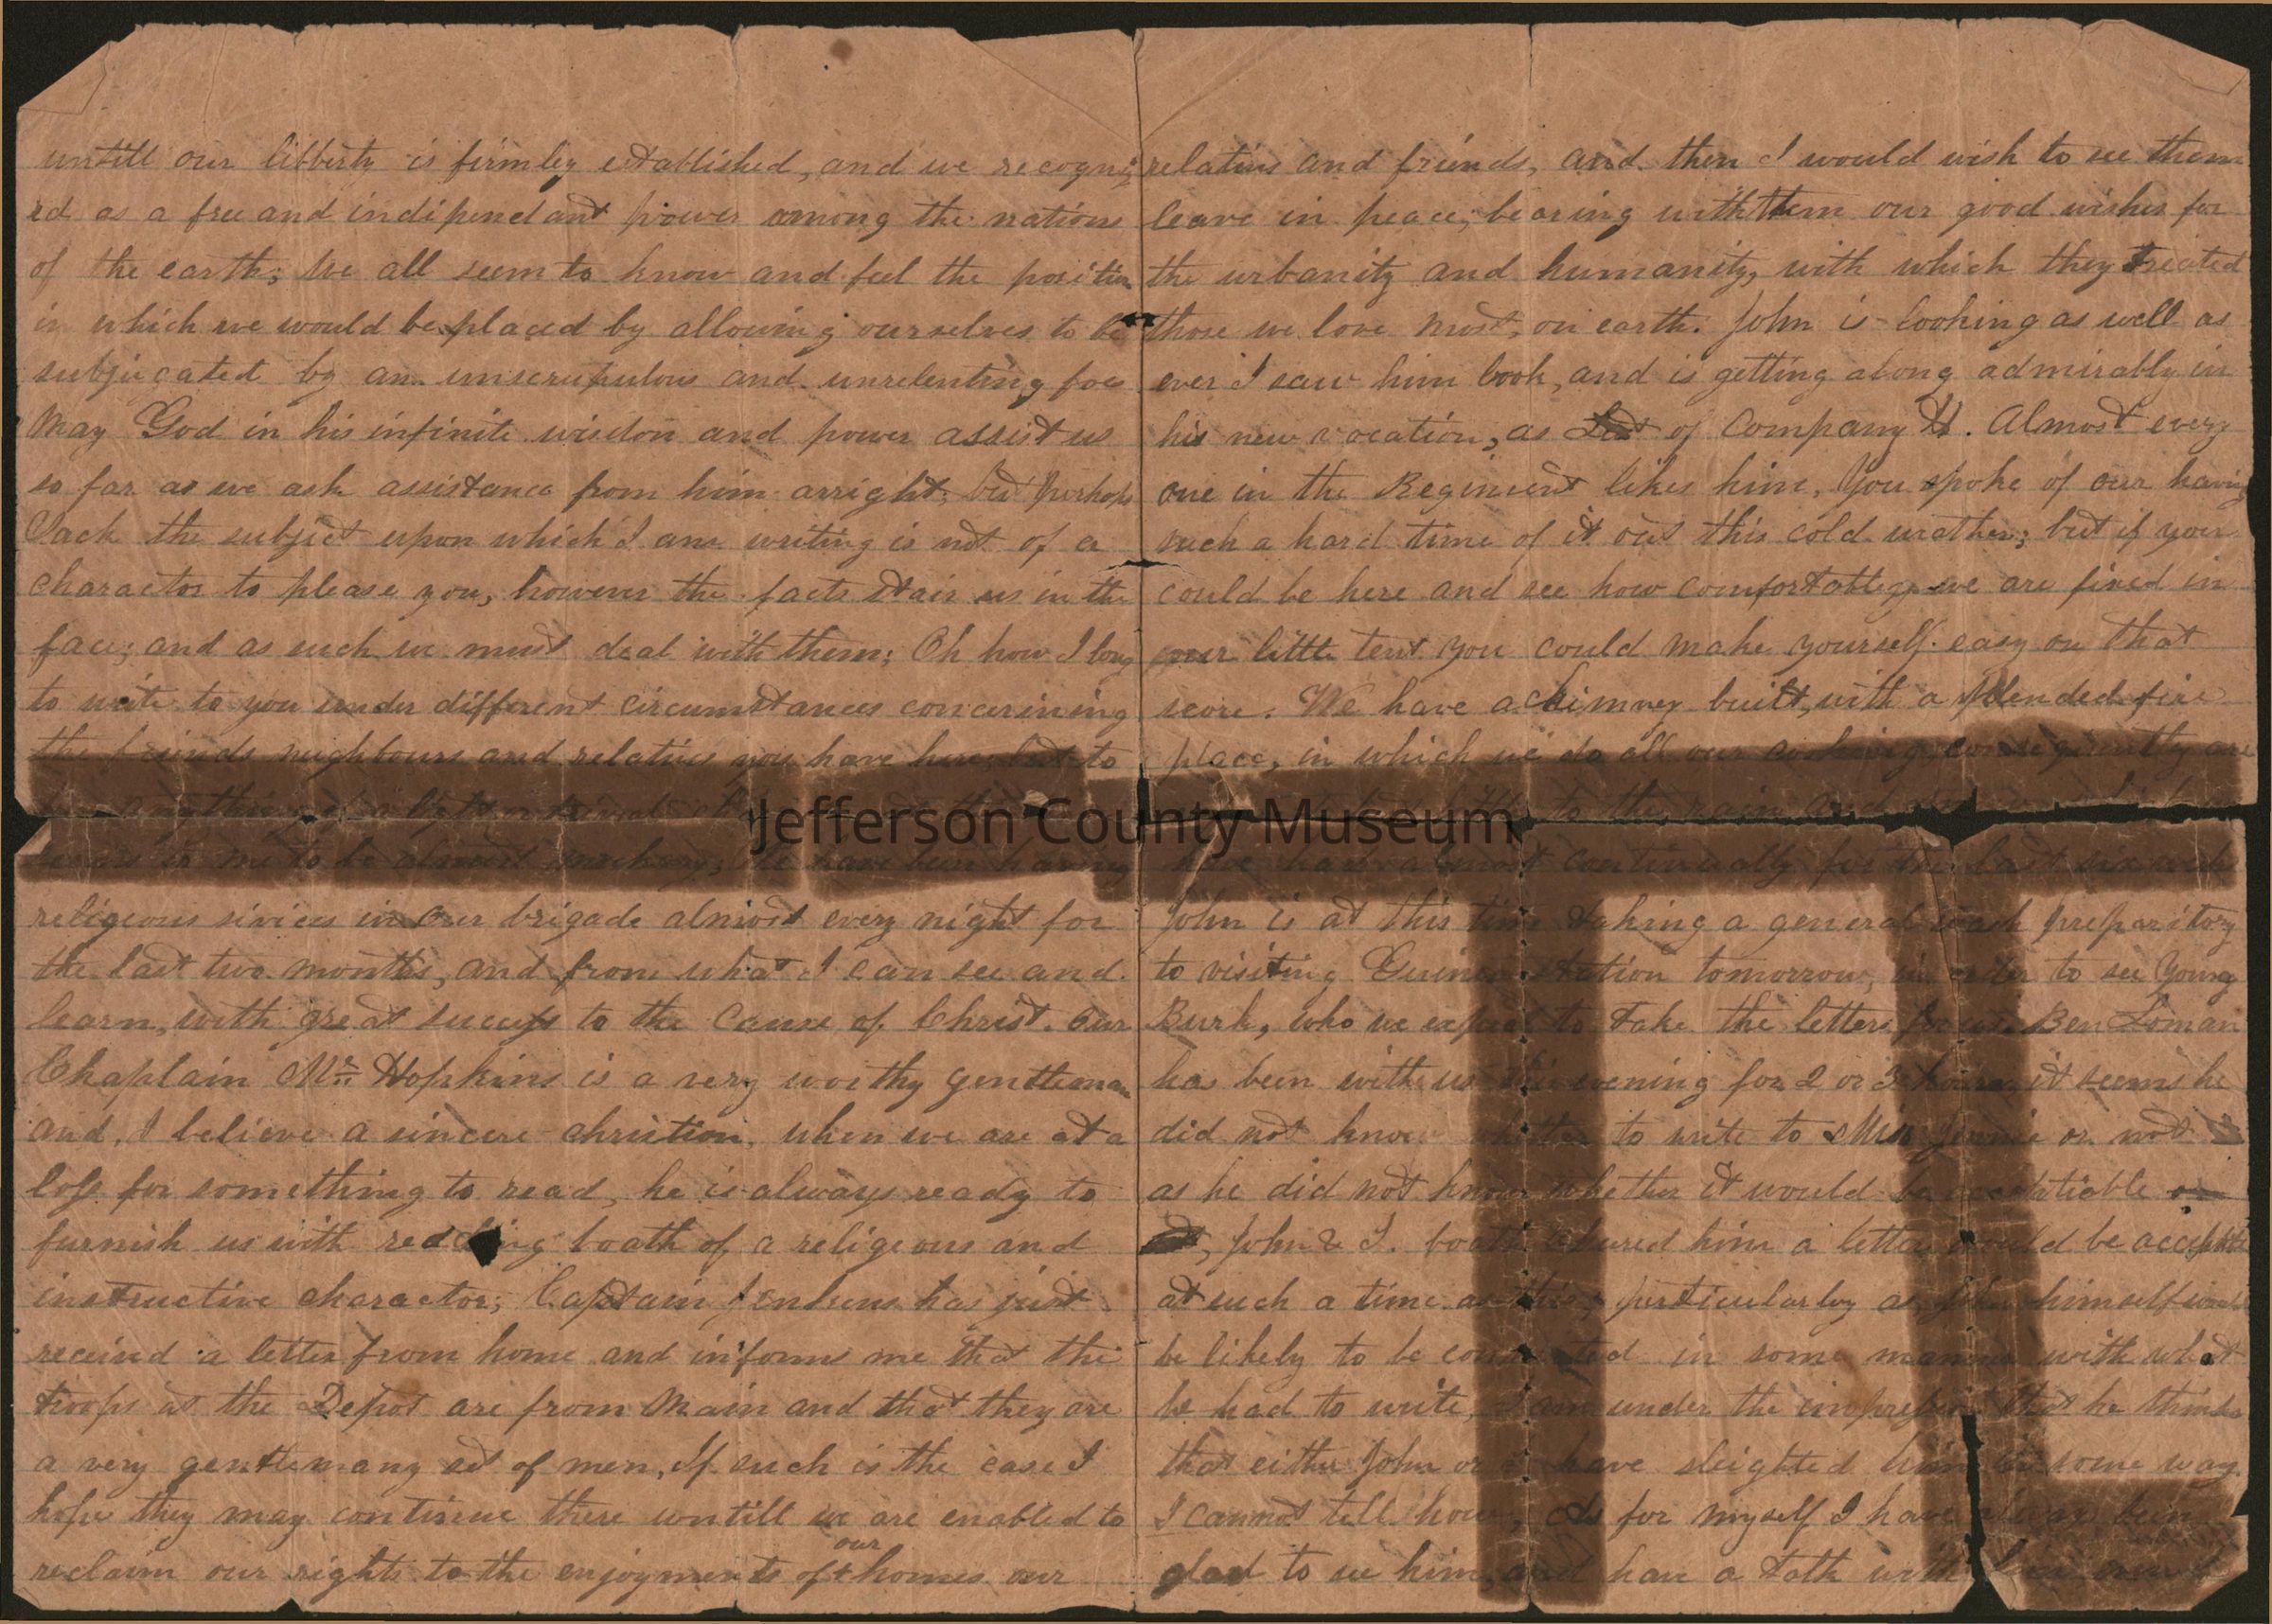 untill our libberty is firmley established, and we recogniz
ed as a free and indipendant power among the nations
of the earth; We all seem to know and feel the position
in which we would be placed by allowing ourselves to be
subjugated by an unscrupulous and unrelenting foe
May God in his infinite wisdon and power assist us
so far as we ask assistance from him arright; but perhaps
Jack the subject upon which I am writing is not of a
charactor to please you, however the facts stair us in the
face; and as such we must deal with them; Oh how I long
to write to you under different circumstances concerining
the friends neighbours and relatives you have here, but to
to me to be almost we have been having
religeous sivices in our brigade almost every night for
the last two months, and from what I can see and
learn, with great success to the Cause of Christ. Our
Chaplain Mr. Hopkins is a very worthy gentleman
and, I believe a sincere christion, when we are at a
loss for something to read, he is always ready to
furnish us with redding boath of a religeous and
instructive charactor; Captain Jenkens has just
received a letter from home and informs me that the
troops at the Depot are from Main and that they are
a very gentlemany set of men, If such is the case I
hope they may continue there untill we are enabled to
reclaim our rights to the enjoyments of our homes our
relatives and friends, and then I would wish to see them
leave in peace, bearing with them our good wishes for
the urbanity and humanity, with which they treated
those we love most, on earth. John is looking as well as
ever I saw him look, and is getting along admirably in
his new vocation, as Lieut of Company H. Almost every
one in the Regiment likes him, You spoke of our having
such a hard time of it out this cold wather; but if you
could be here and see how comfortabley we are fixed in
our little tent you could make yourself easy on that
score. We have a chimney built, with a splended fire
place, in which we do all our cooking, consequently are
to the rain and
have had almost continually for the last six weeks
John is at this time taking a general wash preparitory
to visiting Guinea Station tomorrow, in order to see Young
Burk, who we expect to take the letters for us. Ben Loman
has been with us this evening for 2 or 3 hours, it seems he
did not know whether to write to Miss Jennie or not
as he did not know whether it would be acceptiable or
not, John & I. boath assured him a letter would be acceptible
at such a time as this, particularley as John himself would
be likely to be connected in some manner with what
he had to write, I am under the impression that he thinks
that either John or I have sleighted him in some way.
I cannot tell how, As for myself I have always been
glad to see him, and have a talk with him
Jefferson County Museum